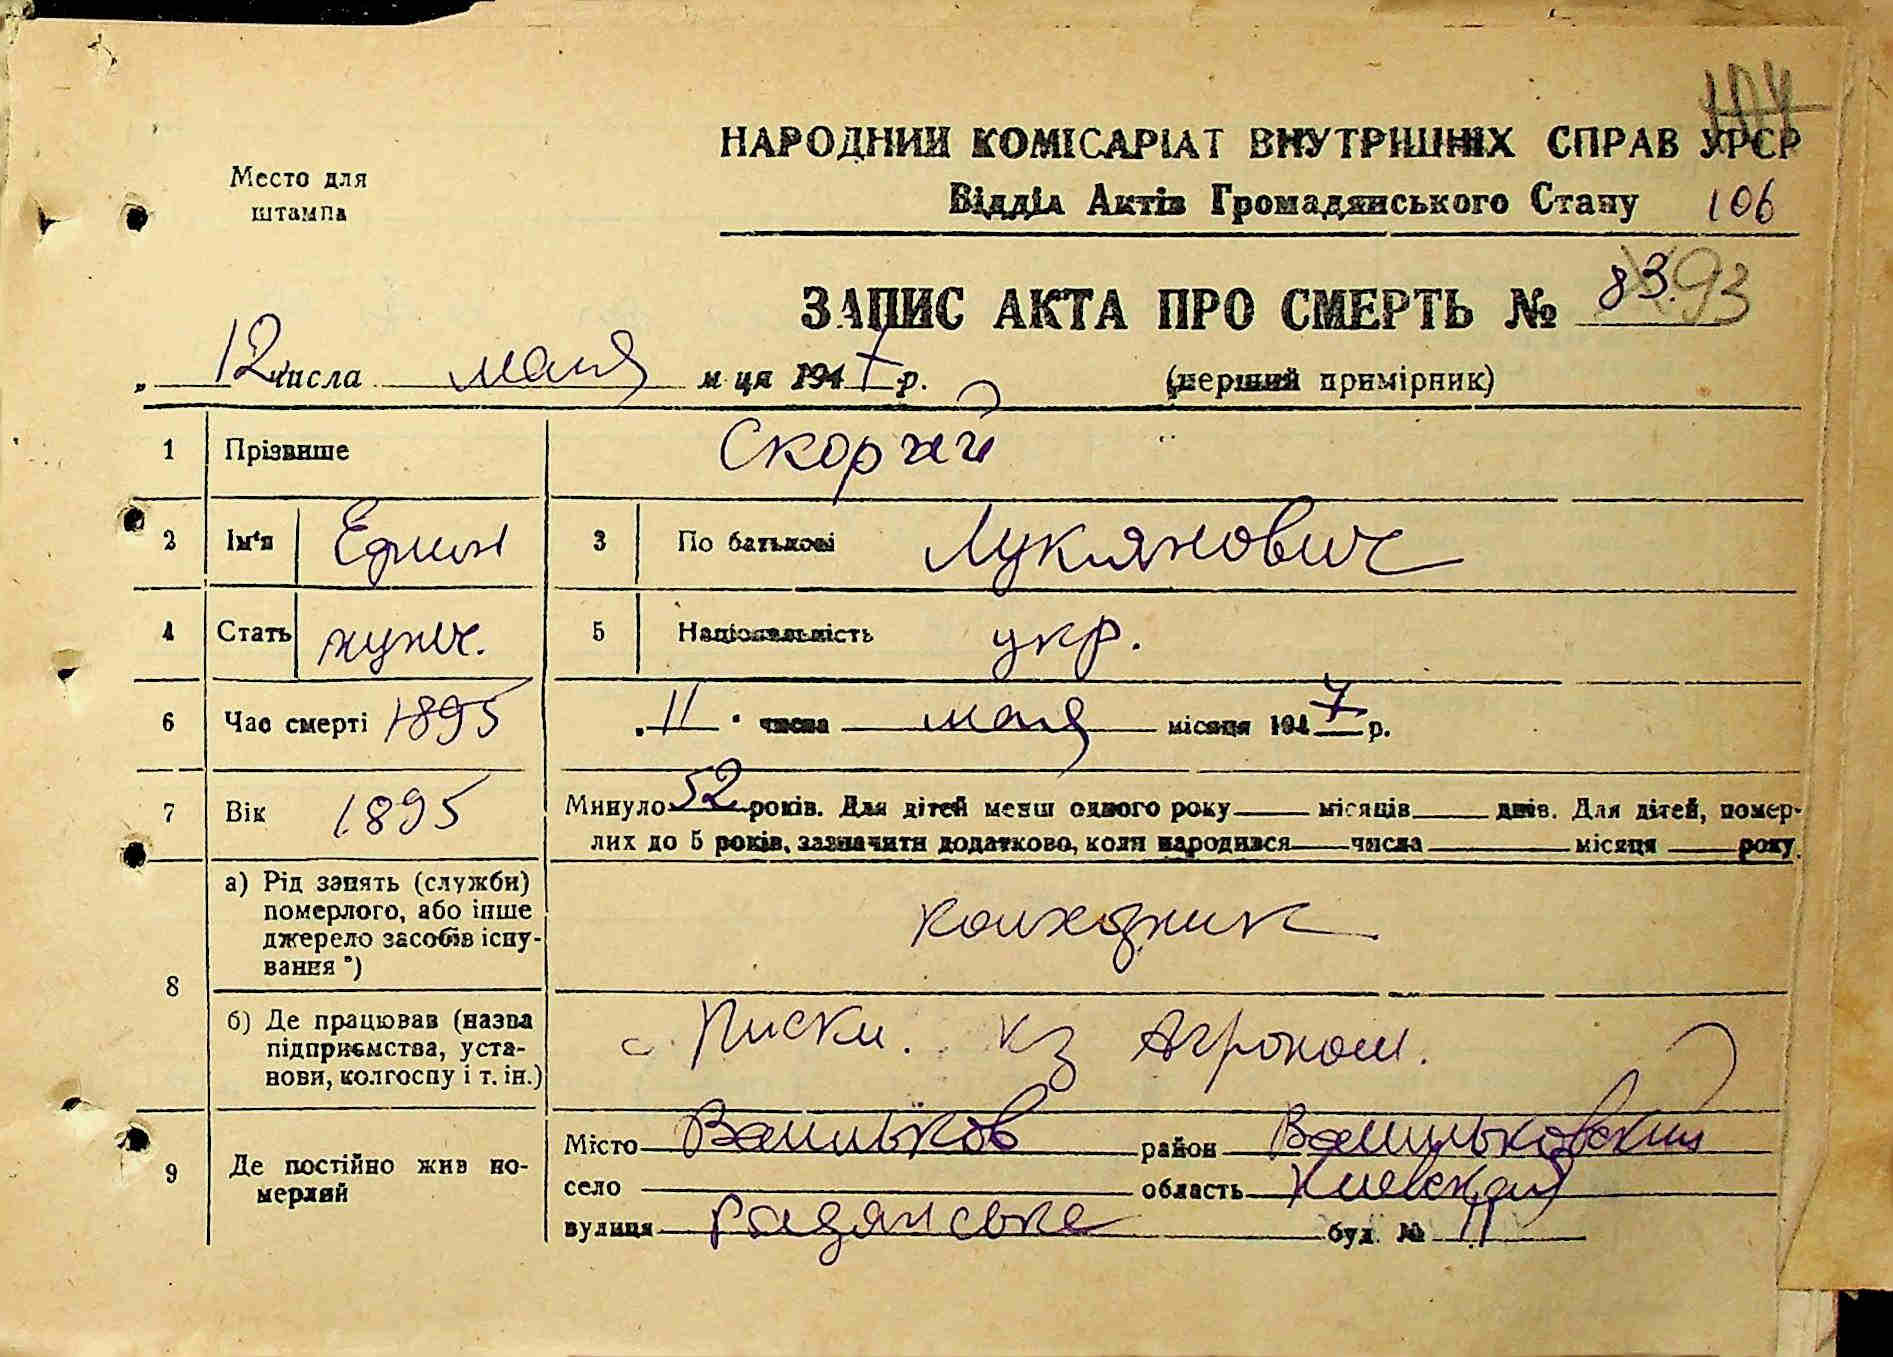 104
НАРОДНИЙ КОМІСАРІАТ ВНУТРІШНІХ СПРАВ УРСР
Место для штампа
Відділ Актів Громадянського Стану 106
ЗАПИС АКТА ПРО СМЕРТЬ № 83. 93
„ 12 числа мая м ця 1947 р. (перший примірник)
1 Прізвище Скорый
2 Ім'я 3 По батькові Лукянович
4 Стать мужч. 5 Національність укр.
6 Час смерті 1895 „ 11 " числа мая місяця 1947 р.
7 Вік 1895 Минуло 52 років. Для дітей менш одного року місяців днів. Для дітей, помер-
лих до 5 років, зазначити додатково, коли народився числа місяця року.
8 а) Рід занять (служби) померлого, або інше джерело засобів існу-вання *) колхозник
б) Де працював (назва підприємства, уста-нови, колгоспу і т. ін.) с. Писки. кз Агроном.
9 Де постійно жив по-мерлий Місто Васильков район Васильковский
село область Киевская
вулиця Радянська буд. № 11